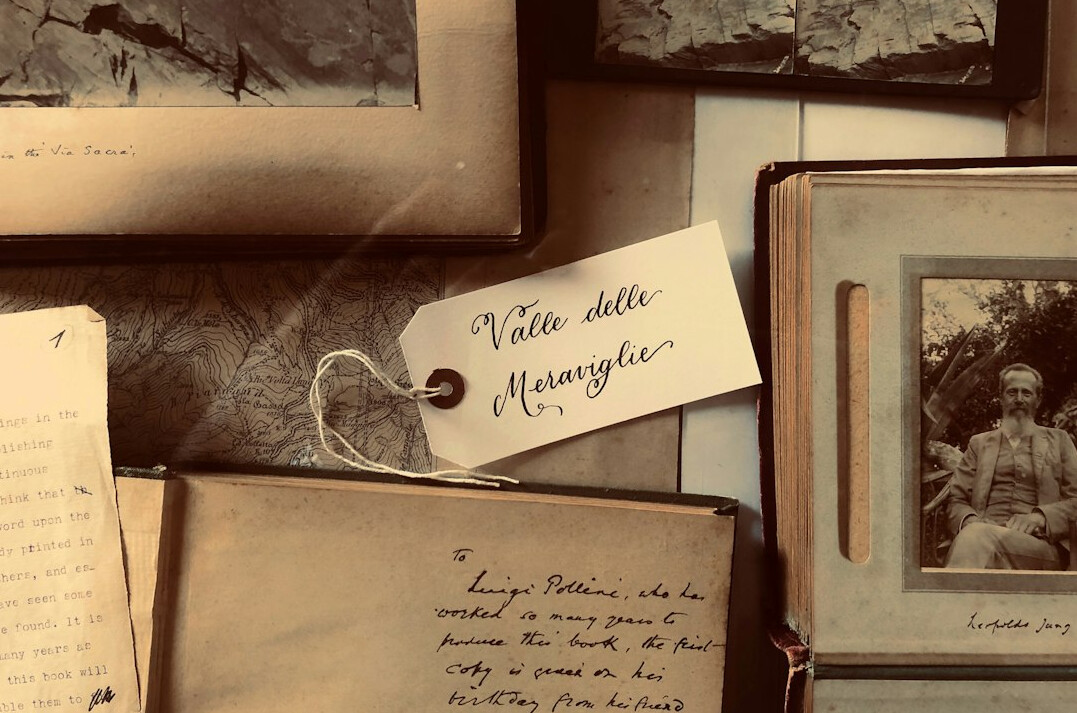 in the 'Via Sacra',
Valle delle
Meraviglie
1
ings in the
lishing
tinuous
hink that
word upon the
dy printed in
hers, and es-
ave seen some
e found. It is
many years as
this book will
able them to
To
Luigi Pollini, who has
worked so many years to
produce this book, the first
copy is given on his
birthday from his friend
Leopoldo Jung